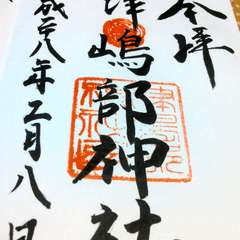 奉拝
津嶋部神社
平成廿八年二月八日